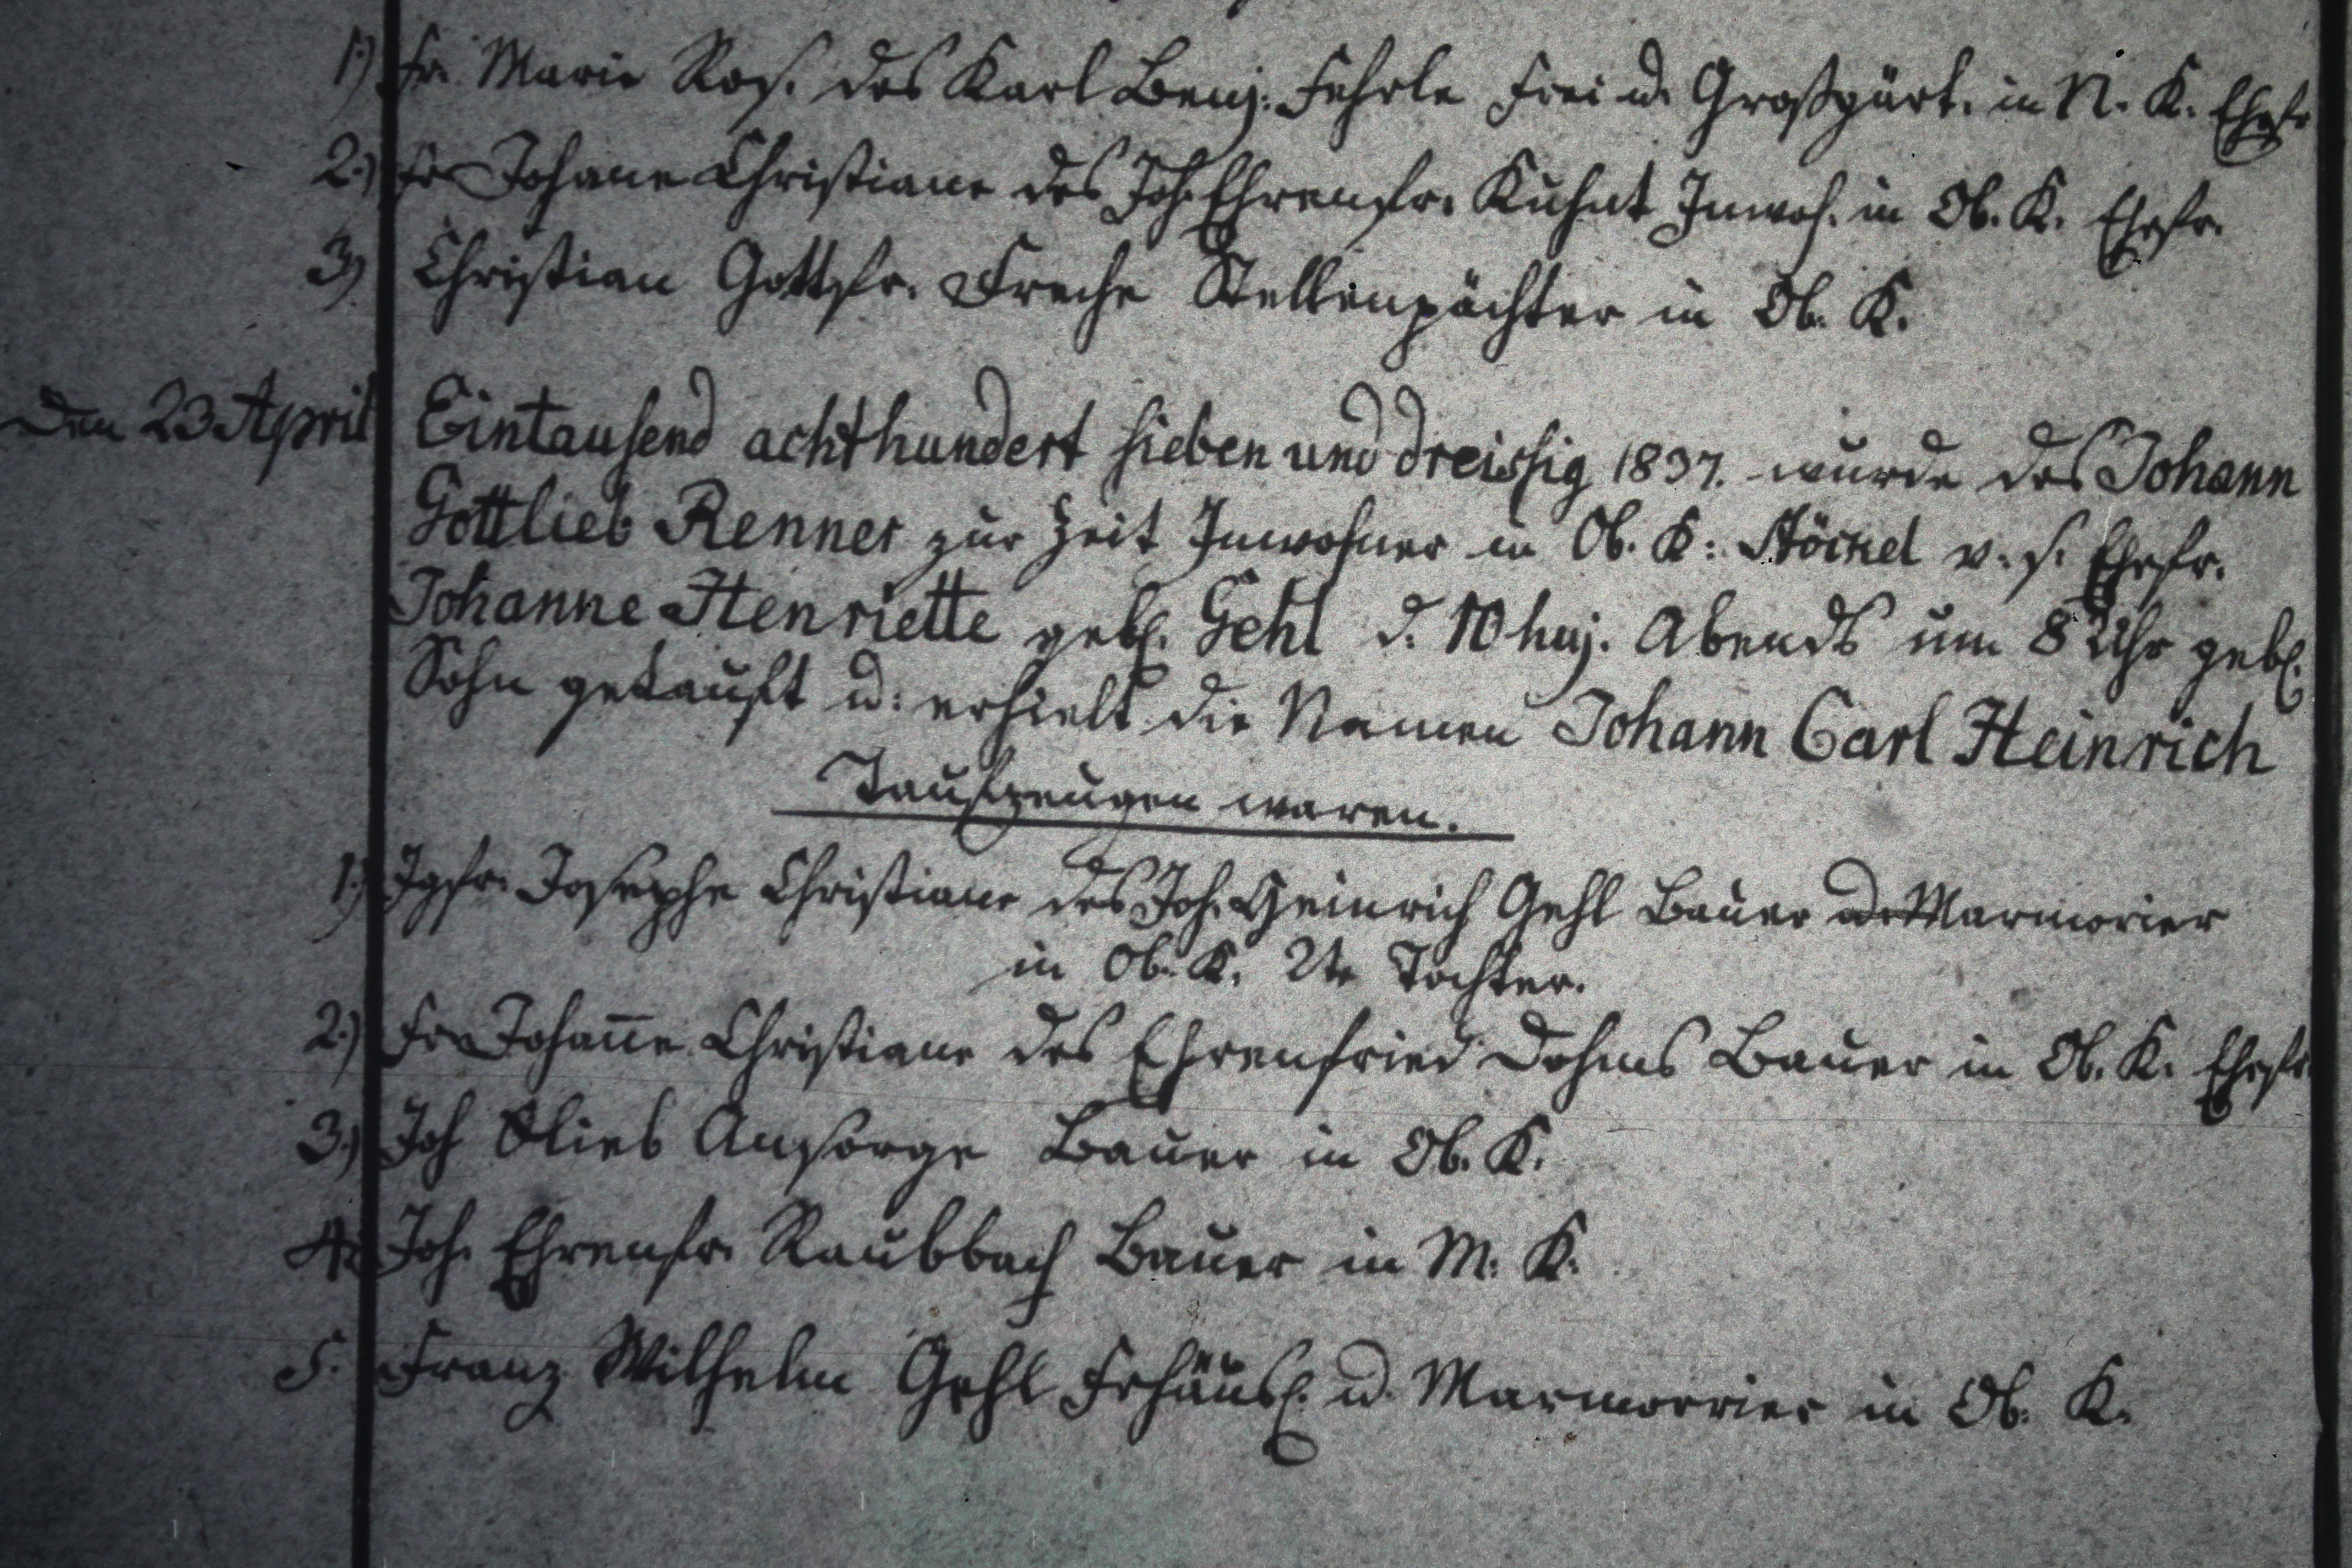 1.) Fr. Marie Ros. des Karl Benj. Fehrle Frei u. Großgärt. in N. K. Ehefr
2.) Fr Johane Christiane des Joh. Ehrenfr. Kuhnt Inwoh. in Ob. K. Ehefr.
3) Christian Gottfr. Freche Stellenpächter in Ob. K.
Den 23 April Eintausend achthundert sieben und dreissig 1837. wurde des Johann
Gottlieb Renner zur Zeit Inwohner in Ob. K: Stöckel v. s. Ehefr.
Johanne Henriette geb. Gehl d. 10 huj. Abends um 8 Uhr geb.
Sohn getauft u: erhielt die Namen Johann Carl Heinrich
Taufzeugen waren.
1.) Jgfr. Josephe Christiane des Joh. Heinrich Gehl Bauer u. Marmorier
in Ob. K. 2te Tochter.
2.) Fr Johan̅e Christiane des Ehrenfried Dohms Bauer in Ob. K. Ehefr
3.) Joh Glieb Ansorge Bauer in Ob. K.
4. Joh. Ehrenfr. Raubbach Bauer in M. K.
5. Franz Wilhelm Gehl Frhäusl. u. Marmorrier in Ob. K.